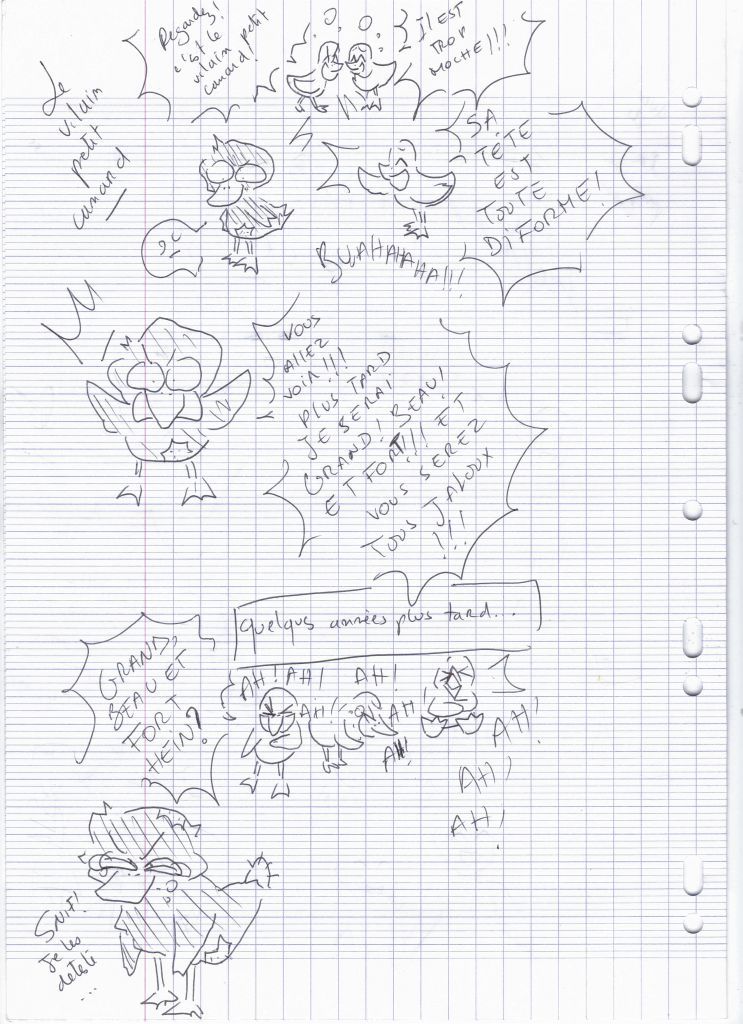 Le
vilain
petit
canard
Regardez!
c'est le
vilain petit
canard!
IL EST
TROP
MOCHE!!!
SA
TÊTE
EST
TOUTE
DIFORME!
BUAHAHAHA!!!
VOUS
ALLEZ
VOIR!!!
PLUS TARD
JE SERAI
GRAND! BEAU!
ET FORT!!! ET
VOUS SEREZ
TOUS JALOUX
!!!
Quelques années plus tard...
GRAND,
BEAU ET
FORT
HEIN?
AH! AH! AH!
AH! AH!
AH!
AH!
AH!
AH!
SNIF!
Je les
déteste
...